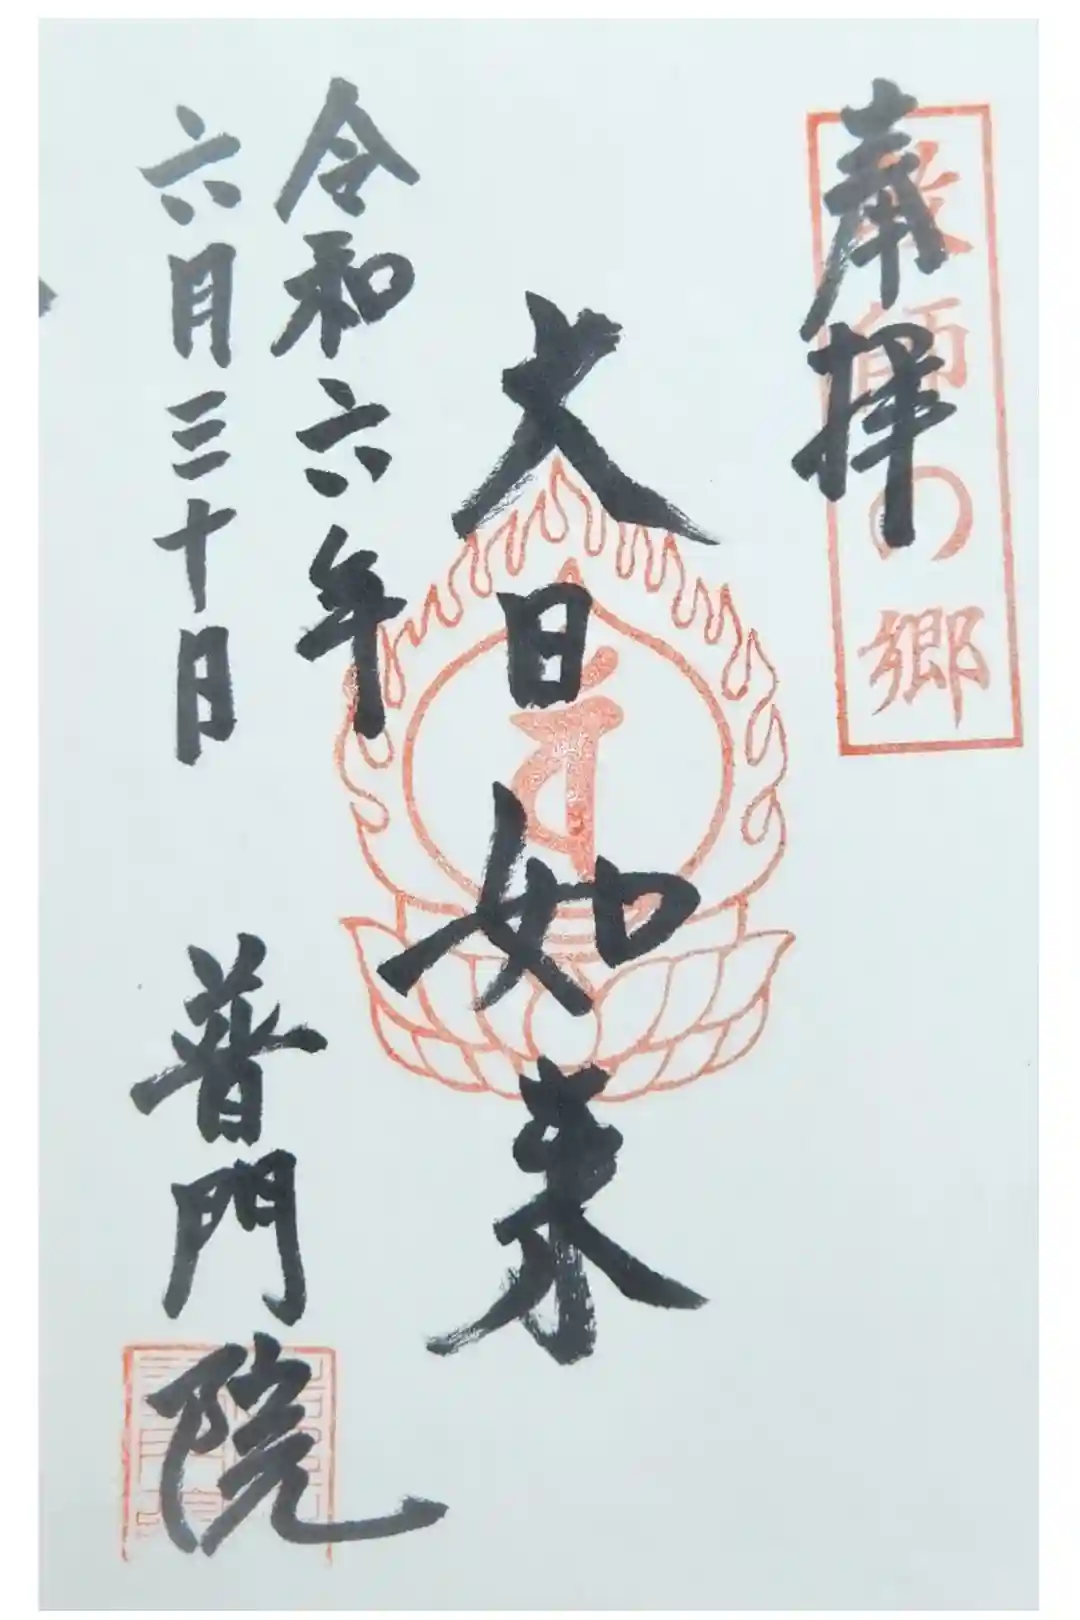 奉拝
師の郷
大日如来
令和六年
六月三十日
普門院